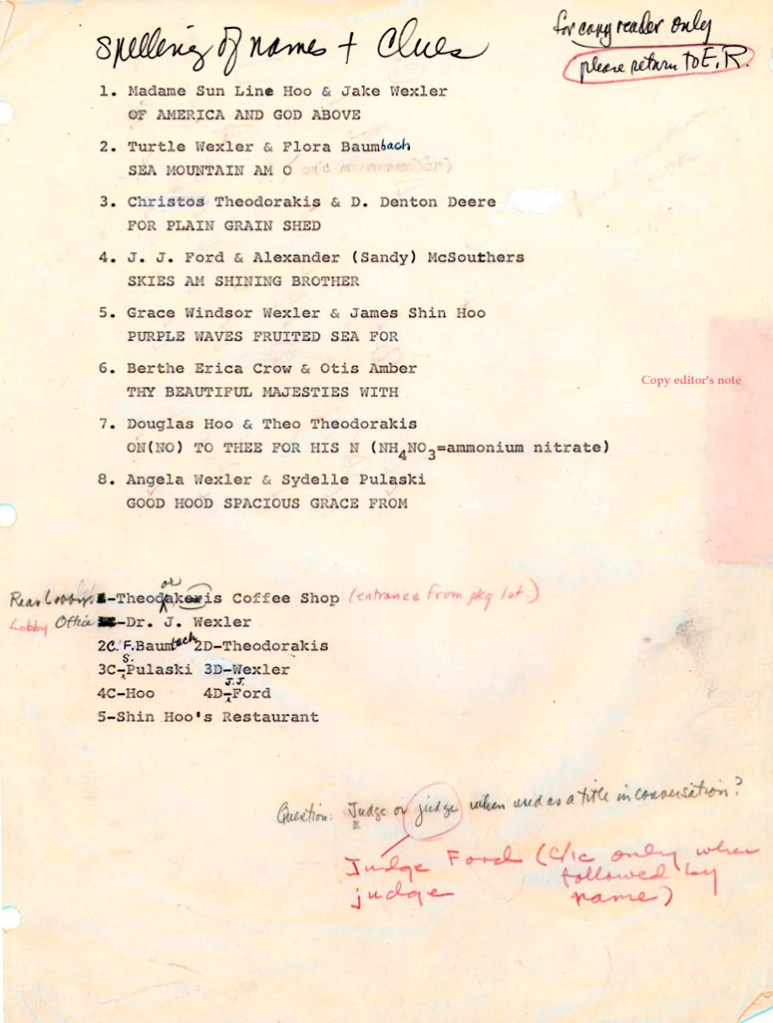 Spelling of names + Clues
for copy reader only
please return to E.R.
1. Madame Sun Line Hoo & Jake Wexler
OF AMERICA AND GOD ABOVE
2. Turtle Wexler & Flora Baumbach
SEA MOUNTAIN AM O
3. Christos Theodorakis & D. Denton Deere
FOR PLAIN GRAIN SHED
4. J. J. Ford & Alexander (Sandy) McSouthers
SKIES AM SHINING BROTHER
5. Grace Windsor Wexler & James Shin Hoo
PURPLE WAVES FRUITED SEA FOR
6. Berthe Erica Crow & Otis Amber
THY BEAUTIFUL MAJESTIES WITH
Copy editor's note
7. Douglas Hoo & Theo Theodorakis
ON(NO) TO THEE FOR HIS N (NH4NO3=ammonium nitrate)
8. Angela Wexler & Sydelle Pulaski
GOOD HOOD SPACIOUS GRACE FROM
or
Rear Lobby -Theodakeris Coffee Shop (entrance from pkg lot.)
Lobby Office -Dr. J. Wexler
2C. F. Baumbach 2D-Theodorakis
3C-S. Pulaski 3D-Wexler
4C-Hoo 4D-J.J. Ford
5-Shin Hoo's Restaurant
Question: Judge or judge when used as a title in conversation?
Judge Ford (c/c only when
judge followed by
name)